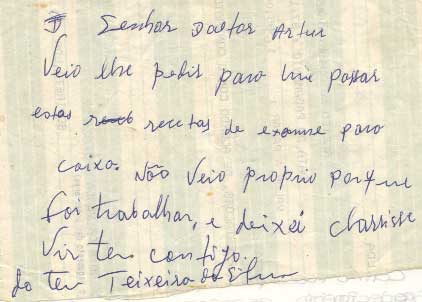 Senhor Doctor Artur
Veio lhe pedir para me passar
estas receb recetas de exame para
caixa. Não Veio proprio porque
foi trabalhar, e deixei classisse
Vir ter contigo.
do teu Teixeira da Silva